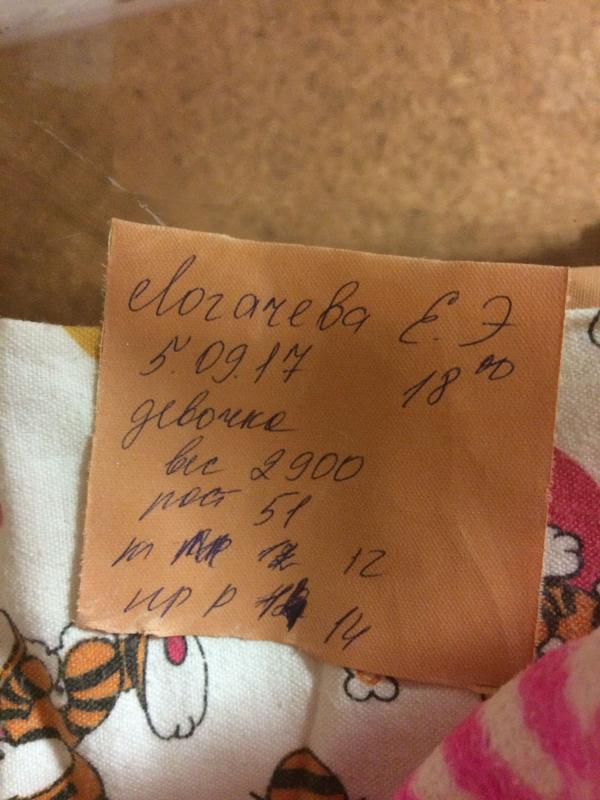 Логачева Е.Э
5.09.17 18 00
девочка
вес 2900
рост 51
12
пр р 14